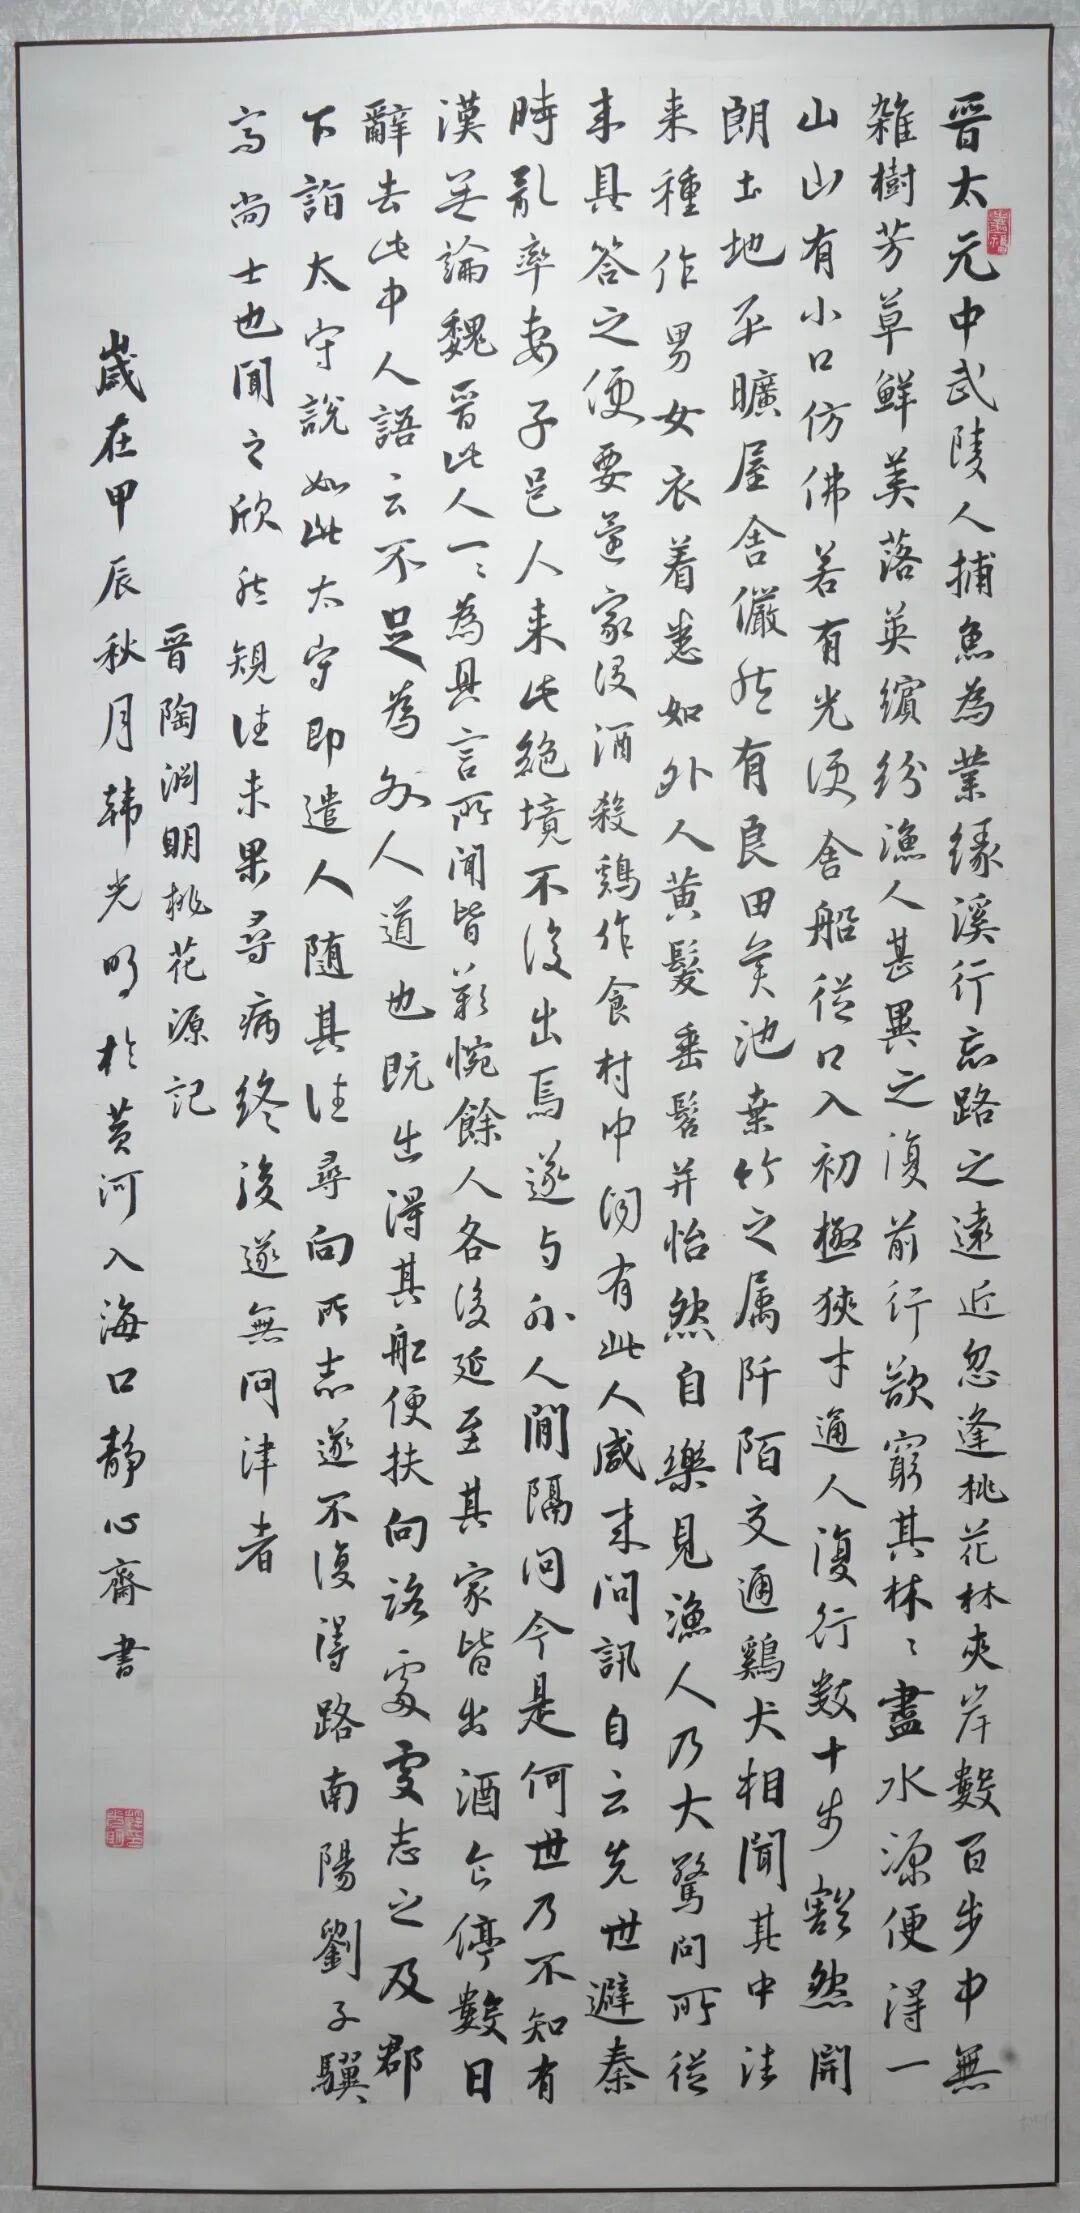 晋太元中武陵人捕魚為業緣溪行忘路之遠近忽逢桃花林夾岸數百步中無
雜樹芳草鮮美落英繽紛漁人甚異之復前行欲窮其林〻盡水源便得一
山山有小口仿佛若有光便舍船從口入初極狹才通人復行数十步豁然開
朗土地平曠屋舍儼然有良田美池桒竹之属阡陌交通鷄犬相聞其中往
来種作男女衣着悉如外人黄髮垂髫并怡然自樂見漁人乃大驚問所從
来具答之便要還家設酒殺鷄作食村中聞有此人咸来問訊自云先世避秦
時亂率妻子邑人来此絶境不復出焉遂与外人間隔問今是何世乃不知有
漢无論魏晋此人一〻為具言所聞皆歎惋餘人各復延至其家皆出酒食停數日
辭去此中人語云不足為外人道也既出得其舩便扶向路處處志之及郡
下詣太守説如此太守即遣人随其往尋向所志遂不復得路南陽劉子驥
高尚士也聞之欣然規往未果尋病終後遂無問津者
晋陶渊明桃花源記
嵗在甲辰秋月韩光明於黄河入海口静心齋書